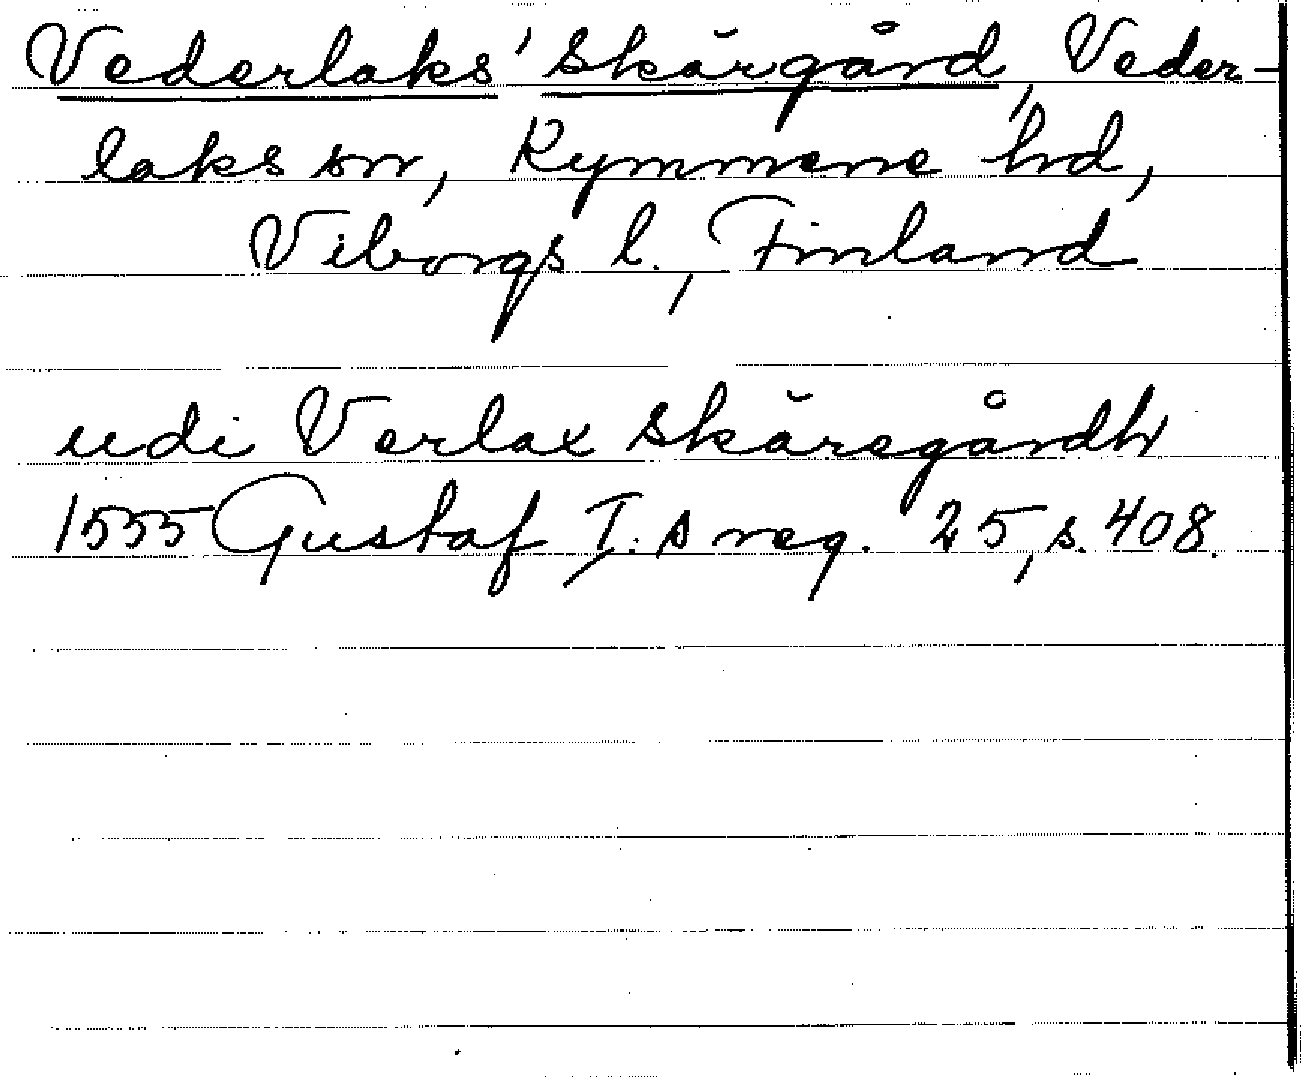 Vederlaks' skärgård, Veder-
laks sn, Kymmene hd,
Viborgs l., Finland
udi Verlax skäregårdh
1555 Gustaf I:s reg. 25, s. 408.